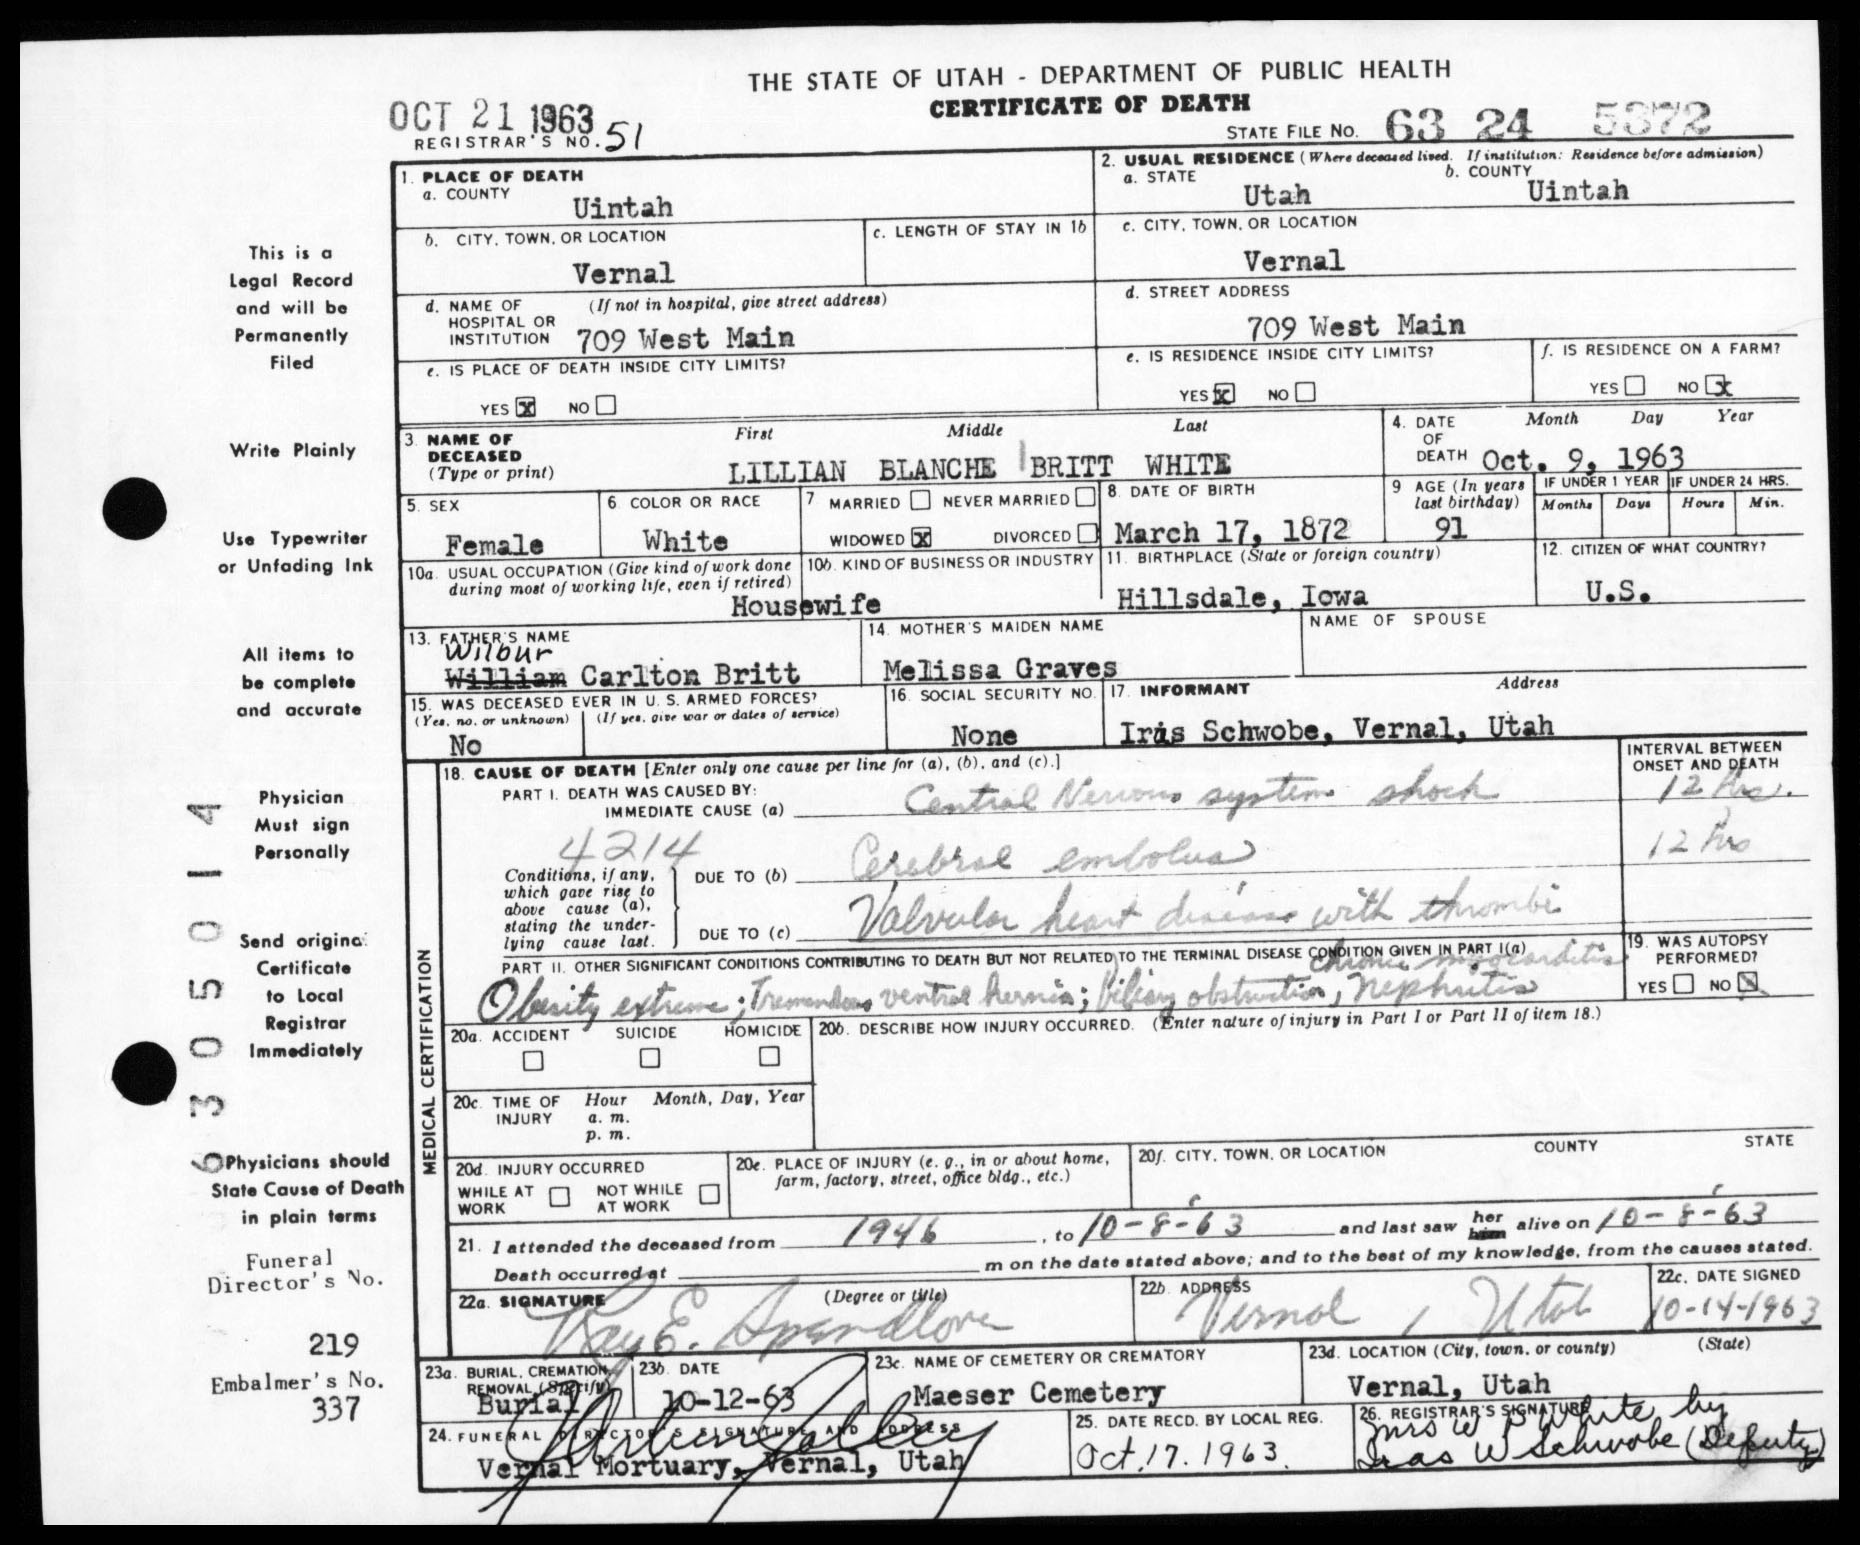 THE STATE OF UTAH - DEPARTMENT OF PUBLIC HEALTH
CERTIFICATE OF DEATH
OCT 21 1963
REGISTRAR'S NO. 51
STATE FILE NO. 63 24 5372
1. PLACE OF DEATH
a. COUNTY
Uintah
2. USUAL RESIDENCE (Where deceased lived. If institution: Residence before admission)
a. STATE
Utah
b. COUNTY
Uintah
b. CITY, TOWN, OR LOCATION
Vernal
c. LENGTH OF STAY IN 1b
c. CITY, TOWN, OR LOCATION
Vernal
d. NAME OF HOSPITAL OR INSTITUTION
(If not in hospital, give street address)
709 West Main
d. STREET ADDRESS
709 West Main
e. IS PLACE OF DEATH INSIDE CITY LIMITS?
YES X NO
e. IS RESIDENCE INSIDE CITY LIMITS?
YES X NO
f. IS RESIDENCE ON A FARM?
YES NO X
3. NAME OF DECEASED
(Type or print)
First Middle Last
LILLIAN BLANCHE BRITT WHITE
4. DATE OF DEATH
Month Day Year
Oct. 9, 1963
5. SEX
Female
6. COLOR OR RACE
White
7 MARRIED NEVER MARRIED
WIDOWED X DIVORCED
8. DATE OF BIRTH
March 17, 1872
9 AGE (In years last birthday)
91
IF UNDER 1 YEAR
Months Days
IF UNDER 24 HRS.
Hours Min.
10a. USUAL OCCUPATION (Give kind of work done during most of working life, even if retired)
Housewife
10b. KIND OF BUSINESS OR INDUSTRY
11. BIRTHPLACE (State or foreign country)
Hillsdale, Iowa
12. CITIZEN OF WHAT COUNTRY?
U.S.
13. FATHER'S NAME
Wilbur
William Carlton Britt
14. MOTHER'S MAIDEN NAME
Melissa Graves
NAME OF SPOUSE
15. WAS DECEASED EVER IN U. S. ARMED FORCES?
(Yes, no, or unknown) (If yes, give war or dates of service)
No
16. SOCIAL SECURITY NO.
None
17. INFORMANT Address
Iris Schwobe, Vernal, Utah
MEDICAL CERTIFICATION
18. CAUSE OF DEATH [Enter only one cause per line for (a), (b), and (c).]
INTERVAL BETWEEN ONSET AND DEATH
PART I. DEATH WAS CAUSED BY:
IMMEDIATE CAUSE (a) Central Nervous system shock
12 hrs.
4214
Conditions, if any, which gave rise to above cause (a), stating the underlying cause last.
DUE TO (b) Cerebral embolus
12 hrs
DUE TO (c) Valvular heart disease with thrombi
PART II. OTHER SIGNIFICANT CONDITIONS CONTRIBUTING TO DEATH BUT NOT RELATED TO THE TERMINAL DISEASE CONDITION GIVEN IN PART I(a)
chronic myocarditis
Obesity extreme; Tremendous ventral hernia; Biliary obstruction, Nephritis
19. WAS AUTOPSY PERFORMED?
YES NO X
20a. ACCIDENT SUICIDE HOMICIDE
20b. DESCRIBE HOW INJURY OCCURRED. (Enter nature of injury in Part I or Part II of item 18.)
20c. TIME OF INJURY
Hour Month, Day, Year
a. m.
p. m.
20d. INJURY OCCURRED
WHILE AT WORK NOT WHILE AT WORK
20e. PLACE OF INJURY (e. g., in or about home, farm, factory, street, office bldg., etc.)
20f. CITY, TOWN, OR LOCATION COUNTY STATE
21. I attended the deceased from 1946, to 10-8-63 and last saw her him alive on 10-8-63
Death occurred at m on the date stated above; and to the best of my knowledge, from the causes stated.
22a. SIGNATURE (Degree or title)
Ray E. Spendlove
22b. ADDRESS
Vernal, Utah
22c. DATE SIGNED
10-14-1963
23a. BURIAL, CREMATION, REMOVAL (Specify)
Burial
23b. DATE
10-12-63
23c. NAME OF CEMETERY OR CREMATORY
Maeser Cemetery
23d. LOCATION (City, town, or county) (State)
Vernal, Utah
24. FUNERAL DIRECTOR'S SIGNATURE AND ADDRESS
Vernal Mortuary, Vernal, Utah
25. DATE RECD. BY LOCAL REG.
Oct. 17. 1963.
26. REGISTRAR'S SIGNATURE
Mrs W P White by
Iras W Schwobe (Deputy)
This is a
Legal Record
and will be
Permanently
Filed
Write Plainly
Use Typewriter
or Unfading Ink
All items to
be complete
and accurate
Physician
Must sign
Personally
Send original
Certificate
to Local
Registrar
Immediately
Physicians should
State Cause of Death
in plain terms
Funeral
Director's No.
219
Embalmer's No.
337
6305014